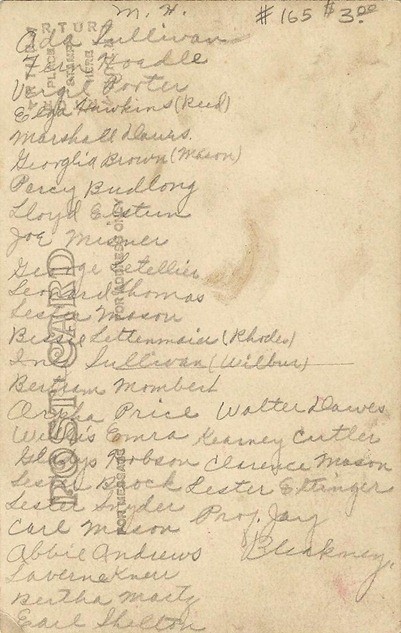 M. H. #165 $3.00
Ada Sullivan
Fern Hoadle
Virgil Porter
Elga Hawkins (Reed)
Marshall Daurs.
Georglia Brown (Mason)
Percy Budlong
Lloyd Elstun
Joe Misner
George Letellier
Leonard Thomas
Leslie Mason
Bessie Lettenmaier (Rhodes)
Ines Sullivan (Wilbur)
Bertram Mombert
Orpha Price Walter Dawes
Emra Kearney Cutler
Gladys Robson Clarence Mason
Leslie Lester Ettinger
Lester Snyder Prof. Jay
Carl Mason
Abbie Andrews Blakney.
Laverne Kneer
Bertha Marty
Earl Shelton
POST CARD
ARTURA
PLACE
STAMP
HERE
FOR ADDRESS ONLY
FOR MESSAGE